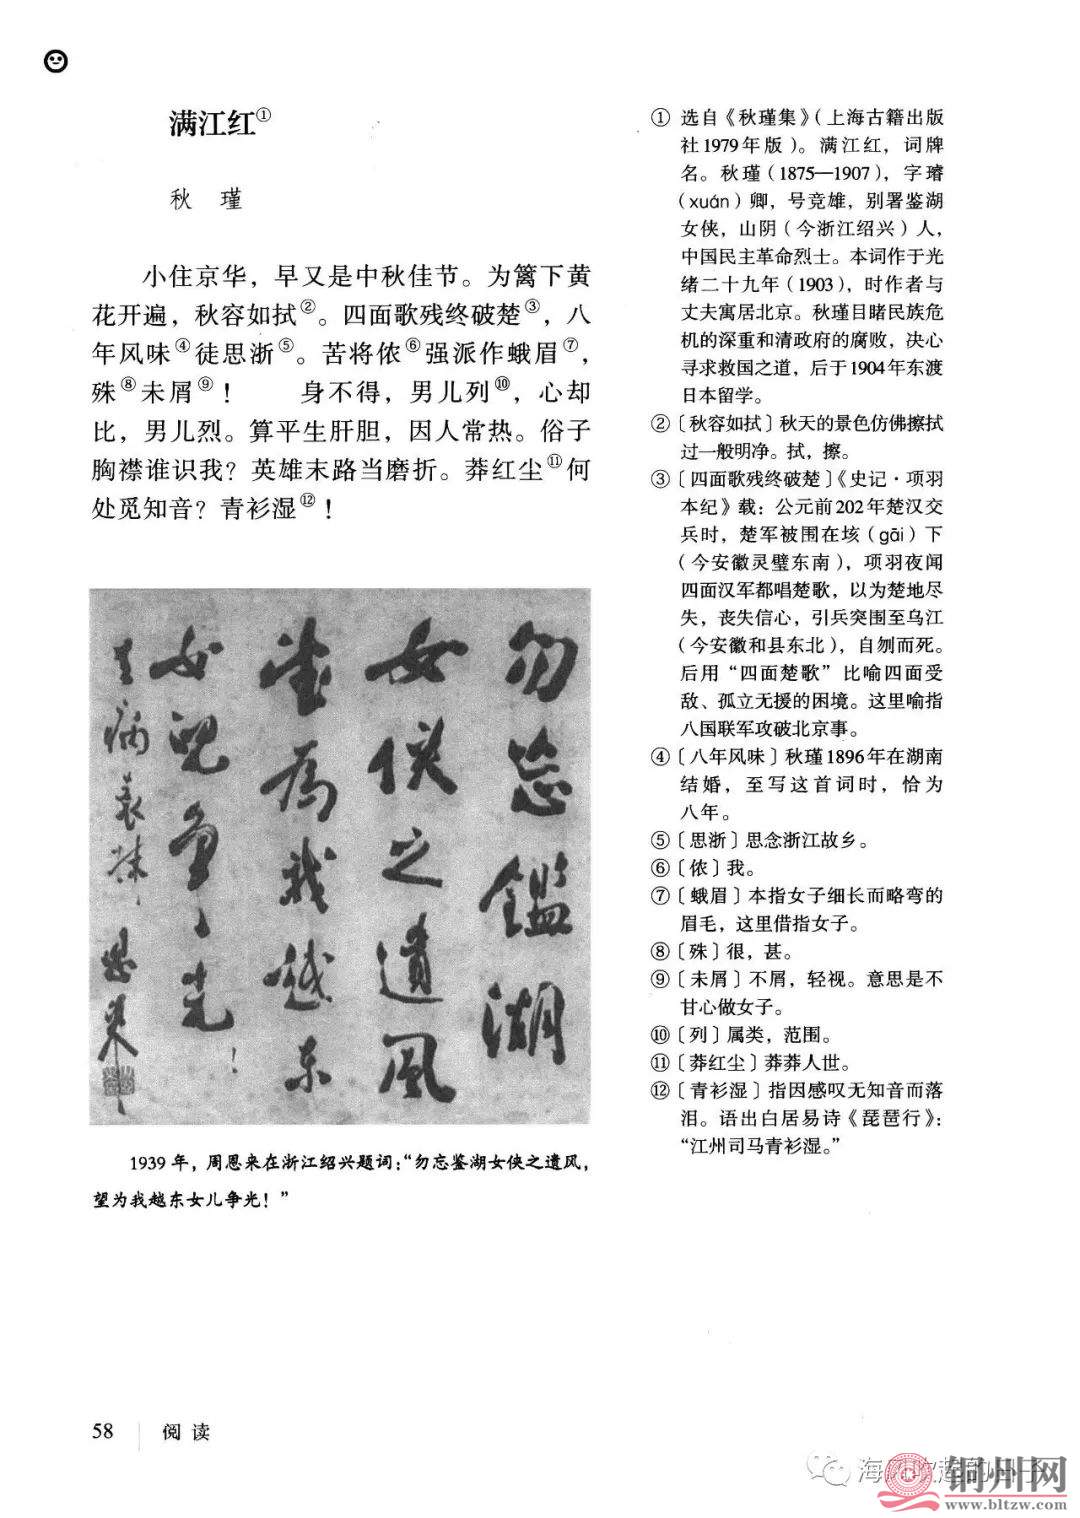 满江红①
秋 瑾
小住京华，早又是中秋佳节。为篱下黄
花开遍，秋容如拭②。四面歌残终破楚③，八
年风味④徒思浙⑤。苦将侬⑥强派作蛾眉⑦，
殊⑧未屑⑨！ 身不得，男儿列⑩，心却
比，男儿烈。算平生肝胆，因人常热。俗子
胸襟谁识我？英雄末路当磨折。莽红尘⑪何
处觅知音？青衫湿⑫！
勿忘鑑湖
女侠之遗风
望为我越东
女儿争光！
1939年，周恩来在浙江绍兴题词：“勿忘鉴湖女侠之遗风，
望为我越东女儿争光！”
① 选自《秋瑾集》（上海古籍出版
社1979年版）。满江红，词牌
名。秋瑾（1875—1907），字璿
（xuán）卿，号竞雄，别署鉴湖
女侠，山阴（今浙江绍兴）人，
中国民主革命烈士。本词作于光
绪二十九年（1903），时作者与
丈夫寓居北京。秋瑾目睹民族危
机的深重和清政府的腐败，决心
寻求救国之道，后于1904年东渡
日本留学。
②〔秋容如拭〕秋天的景色仿佛擦拭
过一般明净。拭，擦。
③〔四面歌残终破楚〕《史记·项羽
本纪》载：公元前202年楚汉交
兵时，楚军被围在垓（gāi）下
（今安徽灵璧东南），项羽夜闻
四面汉军都唱楚歌，以为楚地尽
失，丧失信心，引兵突围至乌江
（今安徽和县东北），自刎而死。
后用“四面楚歌”比喻四面受
敌、孤立无援的困境。这里喻指
八国联军攻破北京事。
④〔八年风味〕秋瑾1896年在湖南
结婚，至写这首词时，恰为
八年。
⑤〔思浙〕思念浙江故乡。
⑥〔侬〕我。
⑦〔蛾眉〕本指女子细长而略弯的
眉毛，这里借指女子。
⑧〔殊〕很，甚。
⑨〔未屑〕不屑，轻视。意思是不
甘心做女子。
⑩〔列〕属类，范围。
⑪〔莽红尘〕莽莽人世。
⑫〔青衫湿〕指因感叹无知音而落
泪。语出白居易诗《琵琶行》：
“江州司马青衫湿。”
58 阅读
铜州网
www.bltzw.com